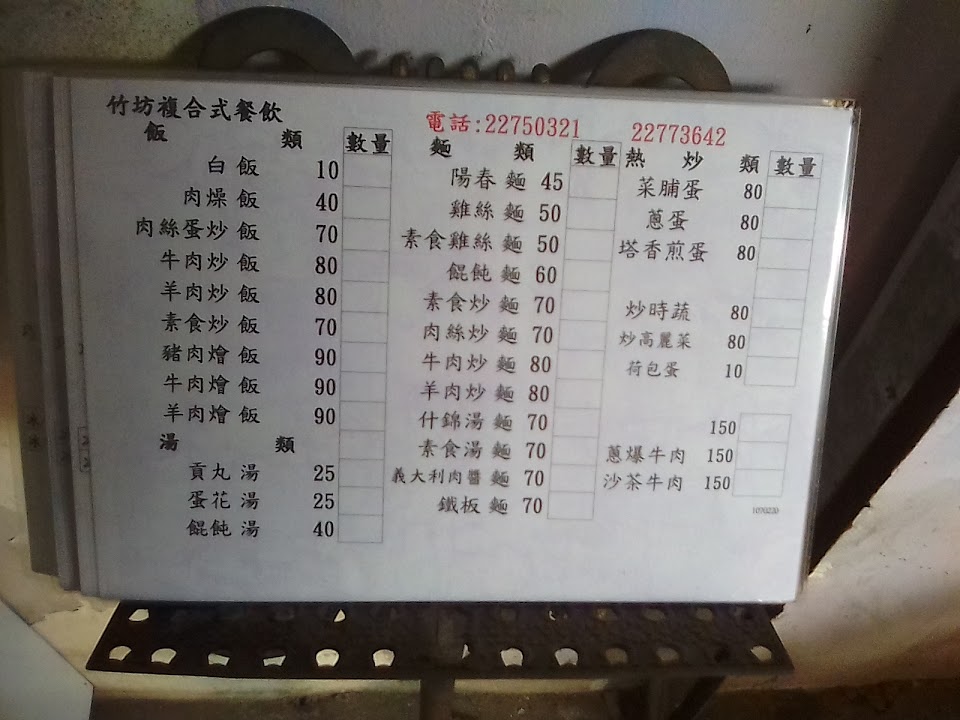 竹坊複合式餐飲
電話:22750321 22773642
飯 類 數量
白飯 10
肉燥飯 40
肉絲蛋炒飯 70
牛肉炒飯 80
羊肉炒飯 80
素食炒飯 70
豬肉燴飯 90
牛肉燴飯 90
羊肉燴飯 90
湯 類
貢丸湯 25
蛋花湯 25
餛飩湯 40
麵 類 數量
陽春麵 45
雞絲麵 50
素食雞絲麵 50
餛飩麵 60
素食炒麵 70
肉絲炒麵 70
牛肉炒麵 80
羊肉炒麵 80
什錦湯麵 70
素食湯麵 70
義大利肉醬麵 70
鐵板麵 70
熱炒類 數量
菜脯蛋 80
蔥蛋 80
塔香煎蛋 80
炒時蔬 80
炒高麗菜 80
荷包蛋 10
150
蔥爆牛肉 150
沙茶牛肉 150
1070220